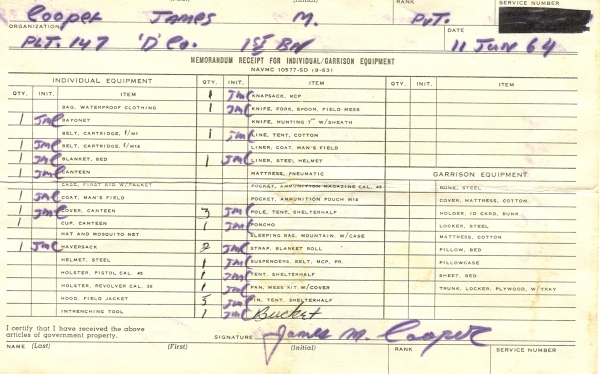 Cooper James M. Pvt.
(First) (Initial) RANK SERVICE NUMBER
ORGANIZATION DATE
PLT. 147 'D' Co. 1ST BN 11 JUN 64
MEMORANDUM RECEIPT FOR INDIVIDUAL/GARRISON EQUIPMENT
NAVMC 10577-SD (9-63)
INDIVIDUAL EQUIPMENT
QTY. INIT. ITEM
BAG, WATERPROOF CLOTHING
1 JMC BAYONET
BELT, CARTRIDGE, f/M1
1 JMC BELT, CARTRIDGE, f/M14
1 JMC BLANKET, BED
1 JMC CANTEEN
CASE, FIRST AID W/PACKET
1 JMC COAT, MAN'S FIELD
1 JMC COVER, CANTEEN
1 CUP, CANTEEN
HAT AND MOSQUITO NET
1 JMC HAVERSACK
HELMET, STEEL
HOLSTER, PISTOL CAL. 45
HOLSTER, REVOLVER CAL. 38
HOOD, FIELD JACKET
INTRENCHING TOOL
QTY. INIT. ITEM
1 JMC KNAPSACK, MCP
1 JMC KNIFE, FORK, SPOON, FIELD MESS
KNIFE, HUNTING 7" W/SHEATH
1 JMC LINE, TENT, COTTON
LINER, COAT, MAN'S FIELD
1 JMC LINER, STEEL, HELMET
MATTRESS, PNEUMATIC
POCKET, AMMUNITION MAGAZINE CAL. 45
POCKET, AMMUNITION POUCH M14
3 JMC POLE, TENT, SHELTERHALF
1 JMC PONCHO
SLEEPING BAG, MOUNTAIN, W/CASE
2 JMC STRAP, BLANKET ROLL
1 JMC SUSPENDERS, BELT, MCP, PR.
1 JMC TENT, SHELTERHALF
1 JMC PAN, MESS KIT W/COVER
5 JMC PIN, TENT, SHELTERHALF
1 JMC Bucket
ITEM
GARRISON EQUIPMENT
BUNK, STEEL
COVER, MATTRESS, COTTON
HOLDER, ID CARD, BUNK
LOCKER, STEEL
MATTRESS, COTTON
PILLOW, BED
PILLOWCASE
SHEET, BED
TRUNK, LOCKER, PLYWOOD, W/TRAY
I certify that I have received the above
articles of government property.
SIGNATURE James M. Cooper
NAME (Last) (First) (Initial) RANK SERVICE NUMBER